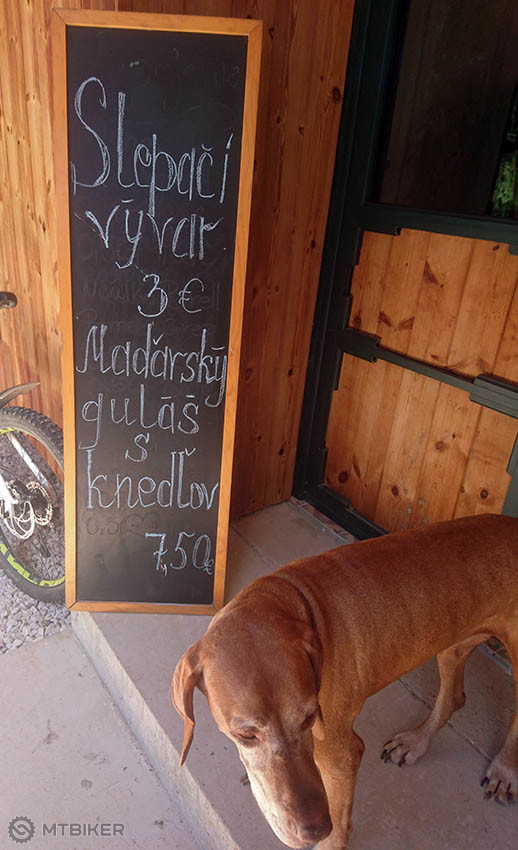 Slepačí
vývar
3 €
Maďarský
guláš
s
knedľov
7,50€
MTBIKER